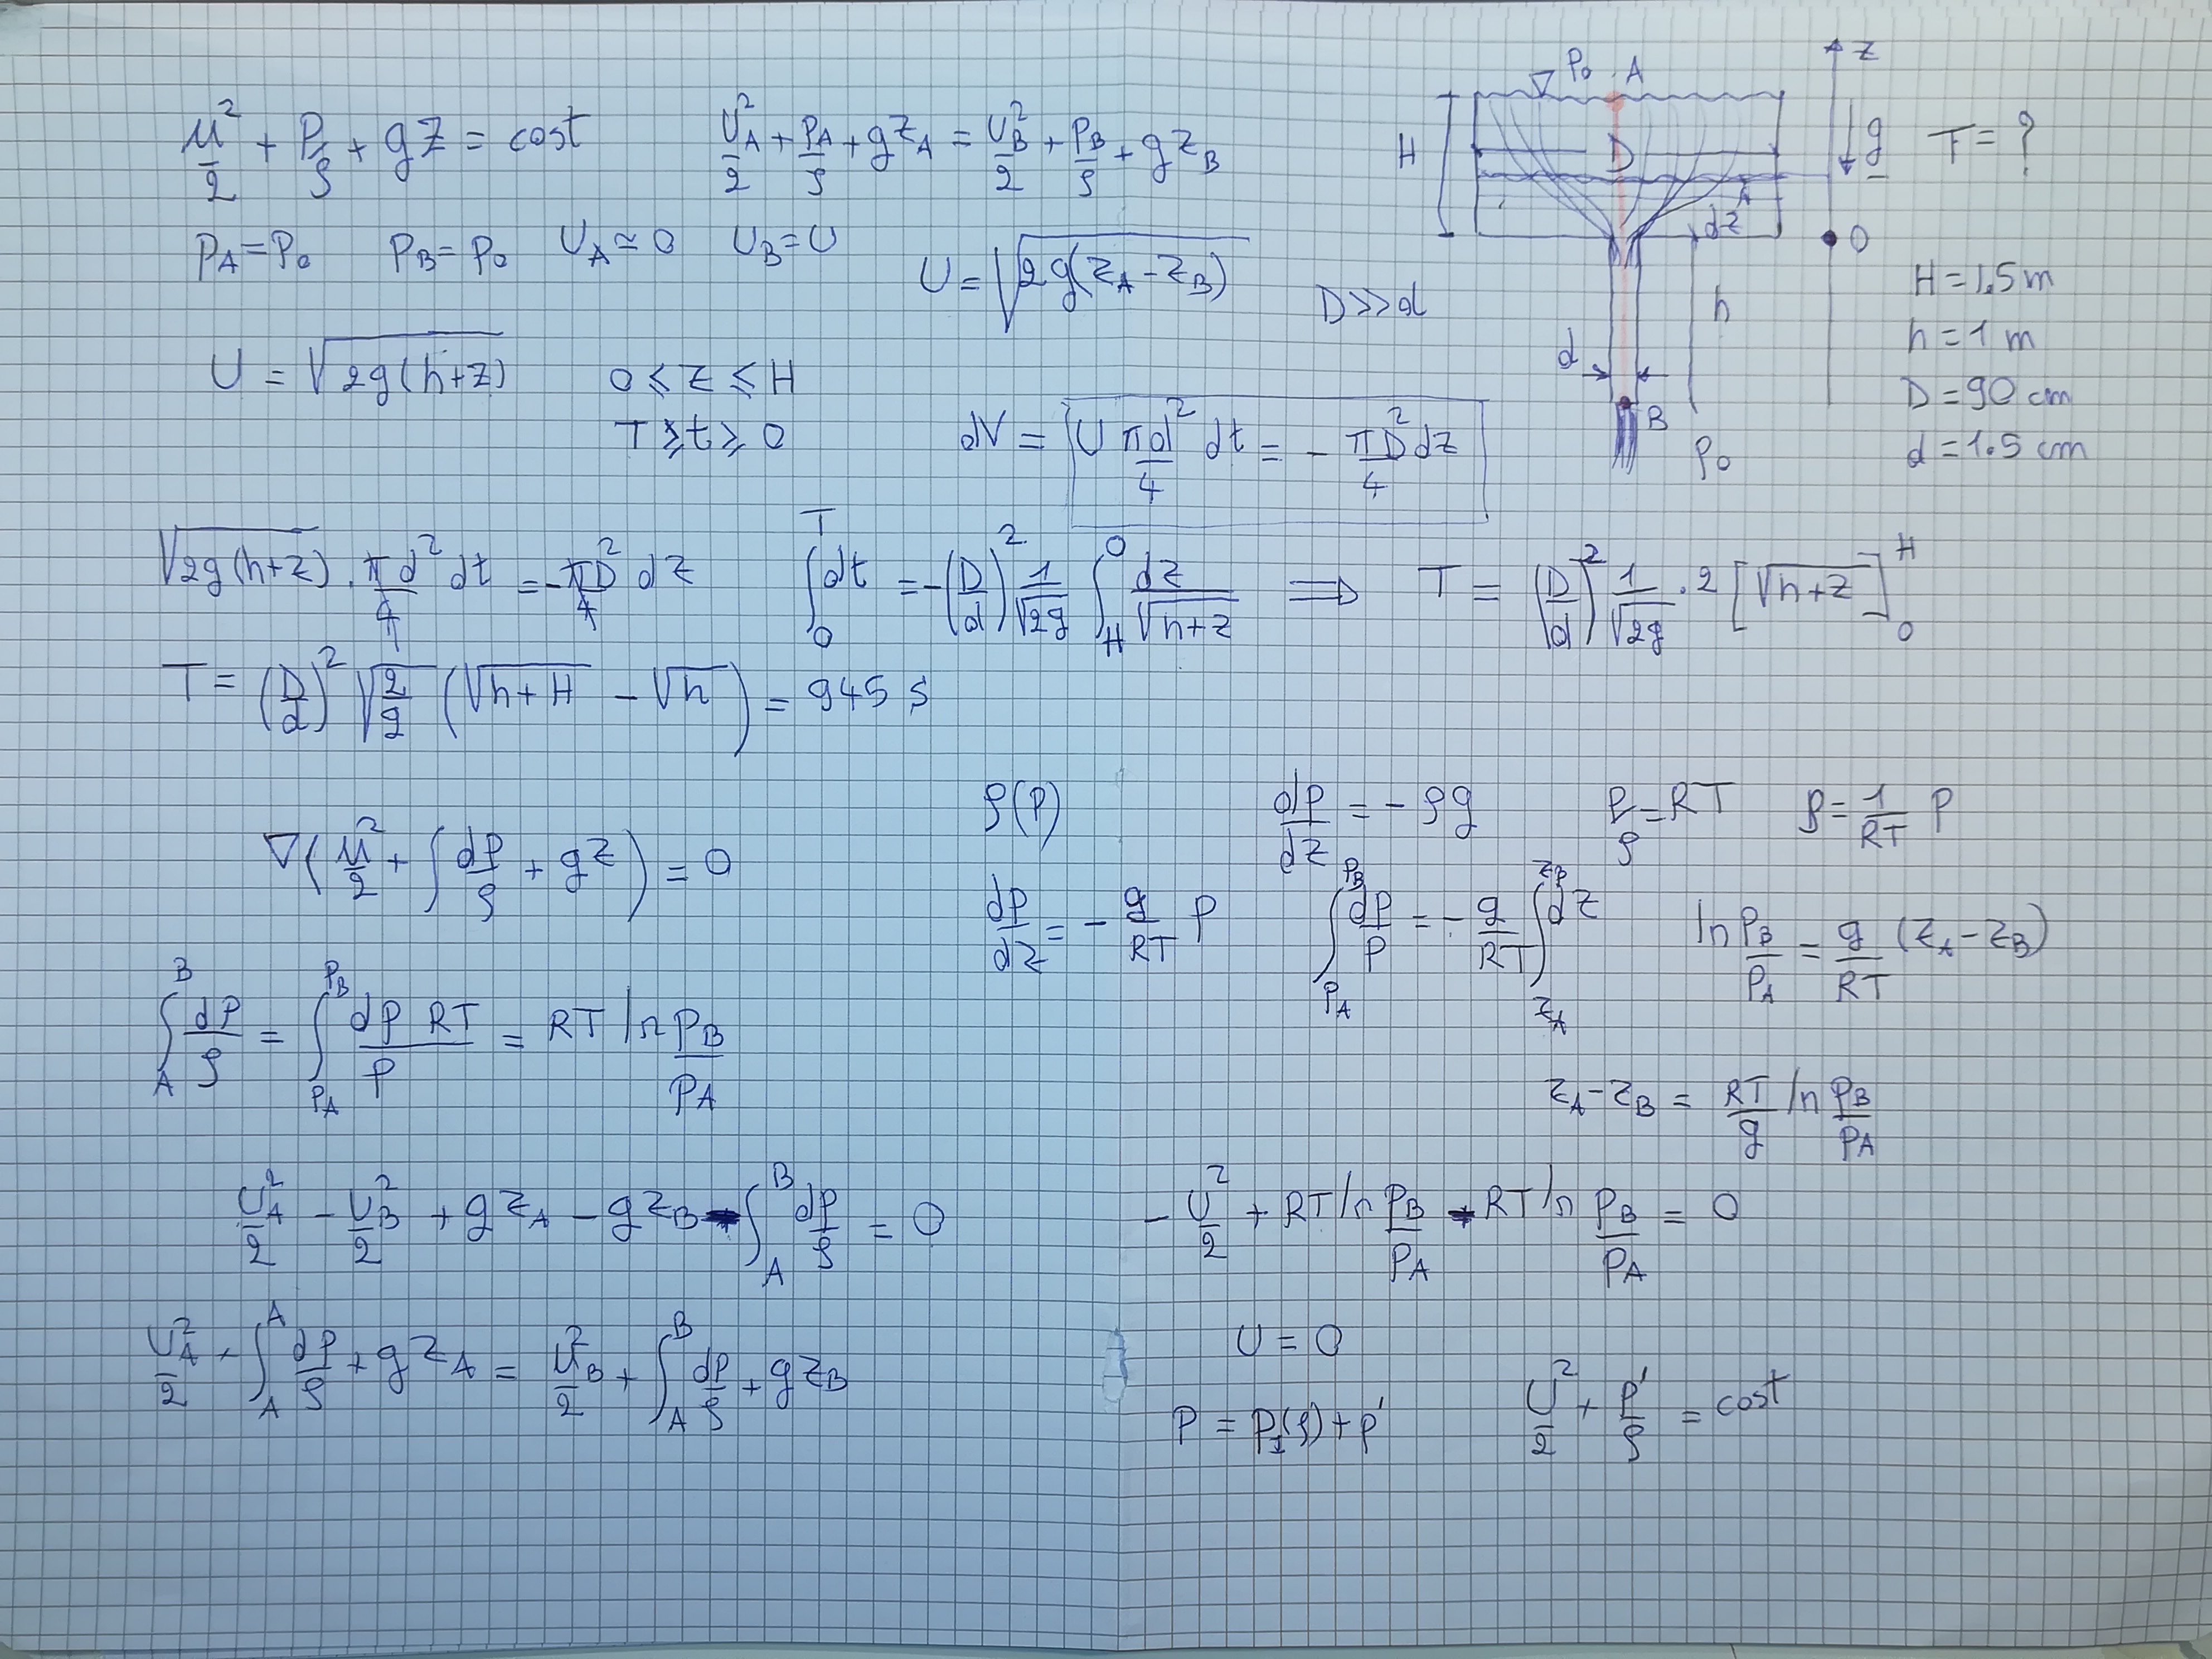 u²/2 + P/ρ + gz = cost   U_A²/2 + P_A/ρ + gz_A = U_B²/2 + P_B/ρ + gz_B
P_A = P₀   P_B = P₀   U_A ≃ 0   U_B = U   U = √(2g(z_A - z_B))   D >> d
U = √(2g(h+z))   0 ⩽ z ⩽ H
T ⩾ t ⩾ 0   dV = U πd²/4 dt = - πD²/4 dz
P₀ A z
H D g T = ?
A
dz O
h
d
B
P₀
H = 1,5 m
h = 1 m
D = 90 cm
d = 1.5 cm
√(2g(h+z)) · πd²/4 dt = - πD²/4 dz   ∫₀ᵀ dt = -(D/d)² 1/√(2g) ∫_H^0 dz/√(h+z) ⟹ T = (D/d)² 1/√(2g) · 2 [√(h+z)]₀ᴴ
T = (D/d)² √(2/g) (√(h+H) - √h) = 945 s
ρ(P)   dP/dz = - ρg   P/ρ = RT   ρ = 1/RT P
∇(u²/2 + ∫ dP/ρ + gz) = 0
dP/dz = - g/RT P   ∫_{P_A}^{P_B} dP/P = - g/RT ∫_{z_A}^{z_B} dz   ln P_B/P_A = g/RT (z_A - z_B)
∫_A^B dP/ρ = ∫_{P_A}^{P_B} dP RT/P = RT ln P_B/P_A
z_A - z_B = RT/g ln P_B/P_A
U_A²/2 - U_B²/2 + gz_A - gz_B - ∫_A^B dP/ρ = 0   - U²/2 + RT ln P_B/P_A - RT ln P_B/P_A = 0
U_A²/2 + ∫_A^A dP/ρ + gz_A = U_B²/2 + ∫_A^B dP/ρ + gz_B
U = 0
P = P_I(ρ) + p'   U²/2 + P'/ρ = cost